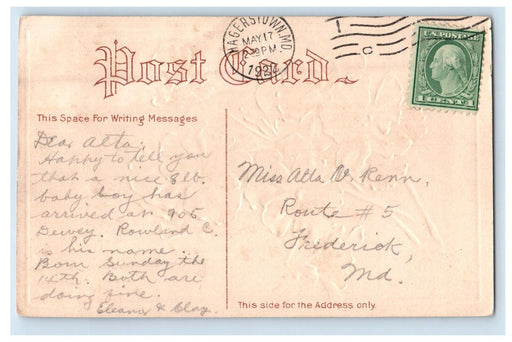 HAGERSTOWN, MD.
MAY 17
PM
U.S. POSTAGE
1 CENT 1
Post Card
This Space For Writing Messages
Dear Alta.
Happy to tell you
that a nice 8 lb.
baby boy has
arrived at 905
Dewey. Rowland C.
is his name.
Born Sunday the
14th. Both are
doing fine.
Eleanor & Clay.
Miss Alta V. Rann,
Route #5
Frederick,
Md.
This side for the Address only.